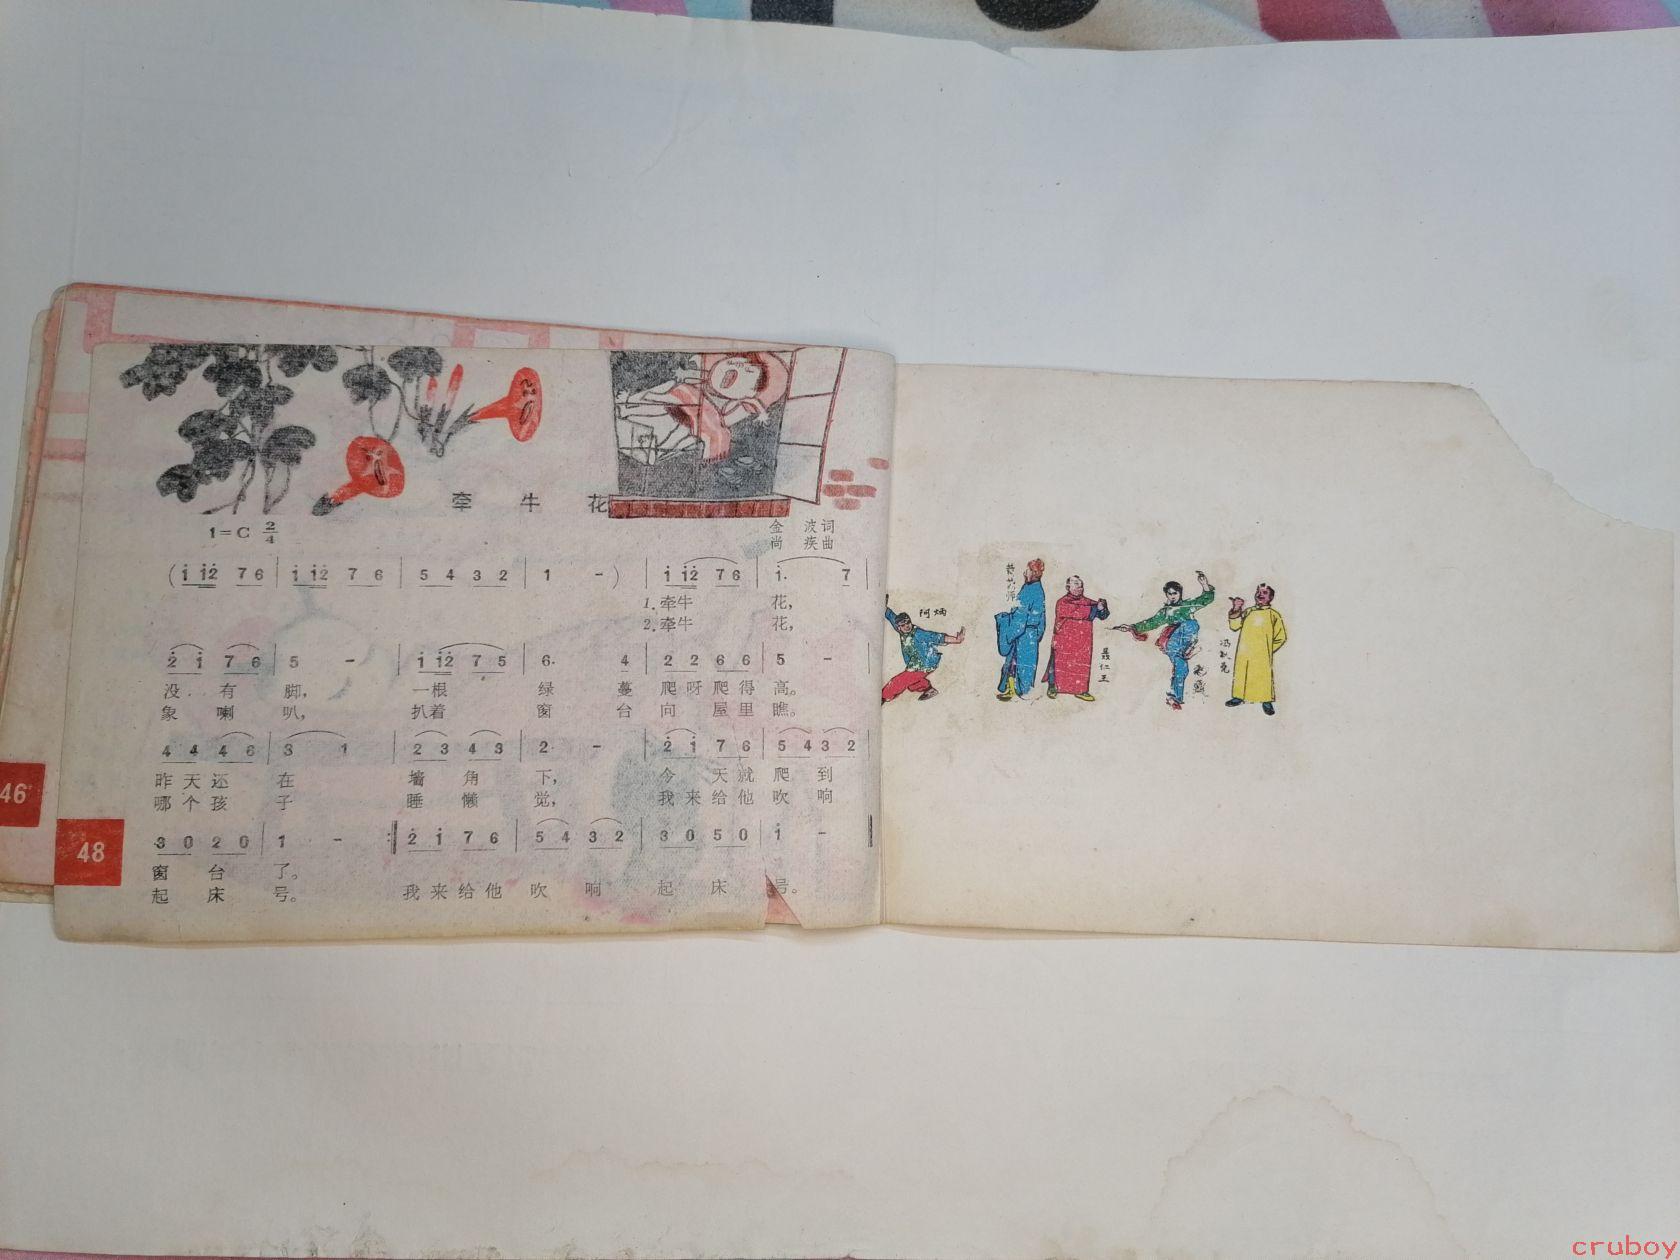 牵牛花
1=C 2/4
金波词
尚疾曲
(i̇ i̇2̇ 7 6 | i̇ i̇2̇ 7 6 | 5 4 3 2 | 1 - ) | i̇ i̇2̇ 7 6 | i̇· 7 |
1.牵牛 花,
2.牵牛 花,
2̇ i̇ 7 6 | 5 - | i̇ i̇2̇ 7 5 | 6· 4 | 2 2 6 6 | 5 -
没有脚, 一根绿蔓爬呀爬得高。
象喇叭, 扒着窗台向屋里瞧。
4 4 4 6 | 3 1 | 2 3 4 3 | 2· - | 2̇ i̇ 7 6 | 5 4 3 2 |
昨天还在墙角下, 今天就爬到
哪个孩子睡懒觉, 我来给他吹响
3 0 2 0 | 1 - :‖ 2̇ i̇ 7 6 | 5 4 3 2 | 3 0 5 0 | i̇ - ‖
窗台了。
起床号。 我来给他吹响起床号。
46
48
阿炳
聂仁王
cruboy